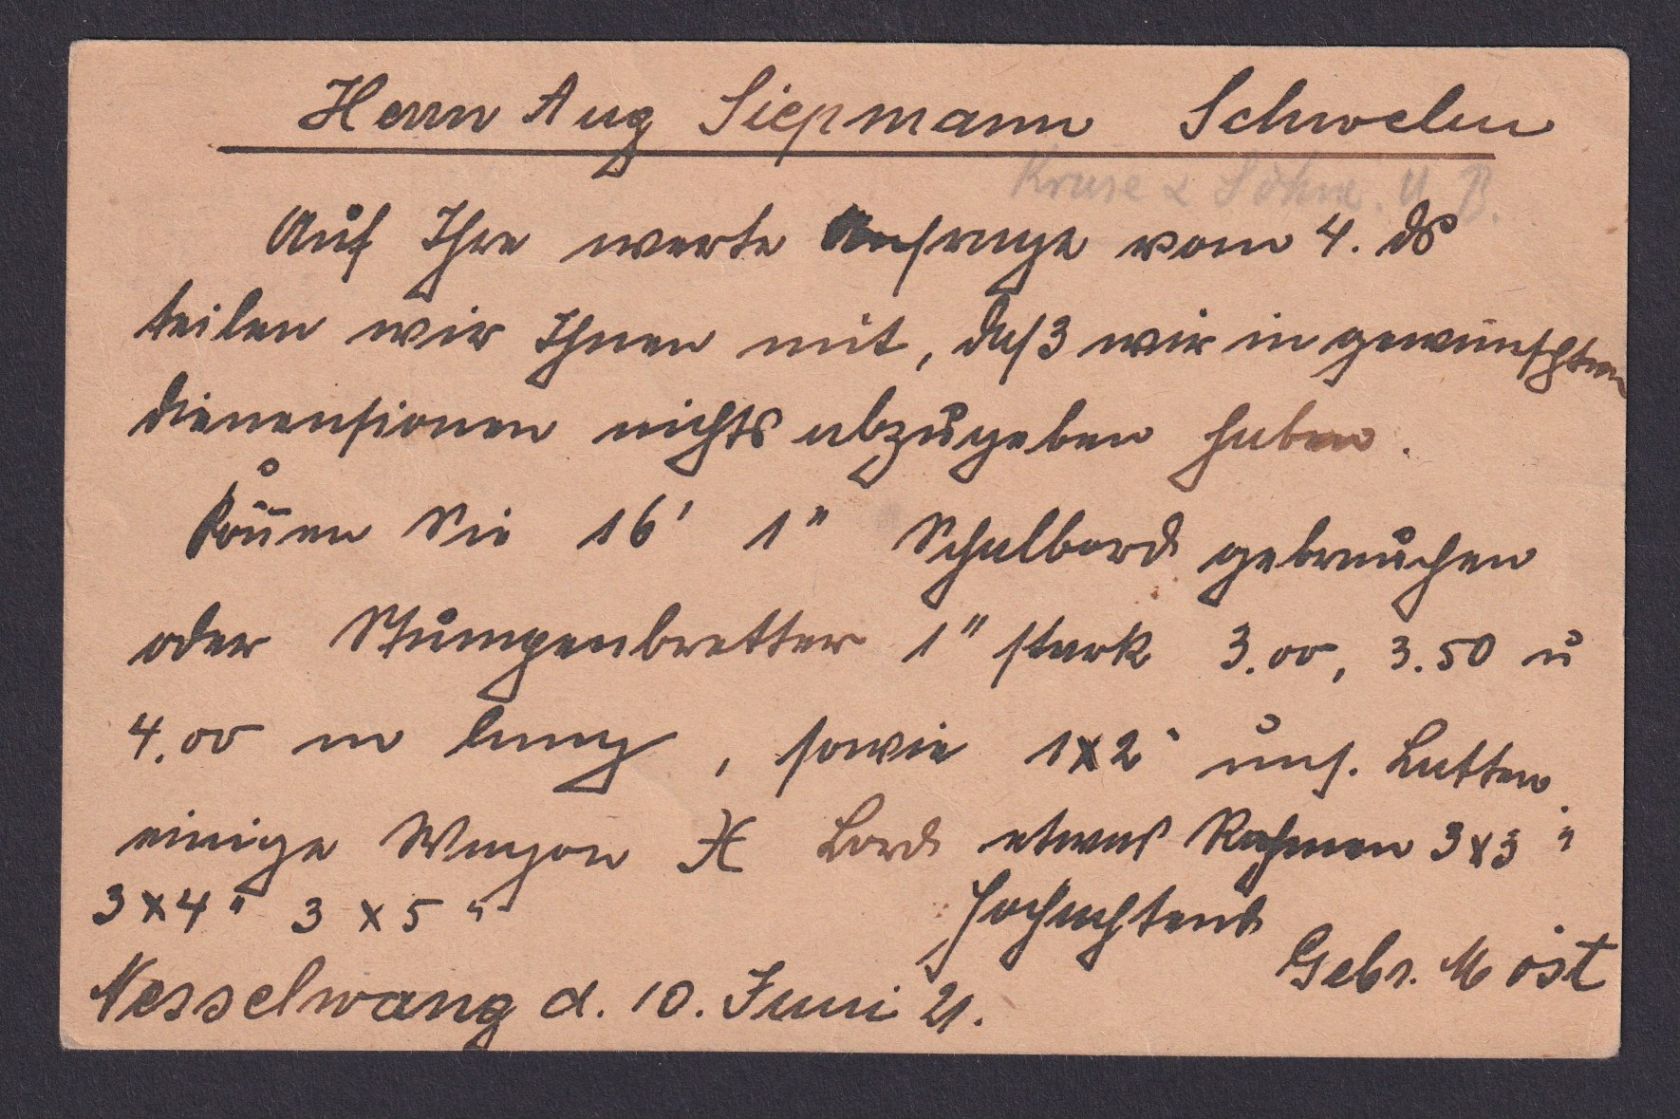 Herrn Aug Siepmann Schwelm
Kruse & Söhne. U. B.
Auf Ihre werte Anfrage vom 4. ds
teilen wir Ihnen mit, daß wir in gewünschten
dimensionen nichts abzugeben haben.
Können Sie 16' 1" Schalbord gebrauchen
oder Stumpenbretter 1" stark 3.00, 3.50 u
4.00 m lang, sowie 1x2" uns. Latten
einige Wagon X Bord etwas Rahmen 3x3"
3x4" 3x5"
Hochachtend
Gebr. Möst
Nesselwang d. 10. Juni 21.